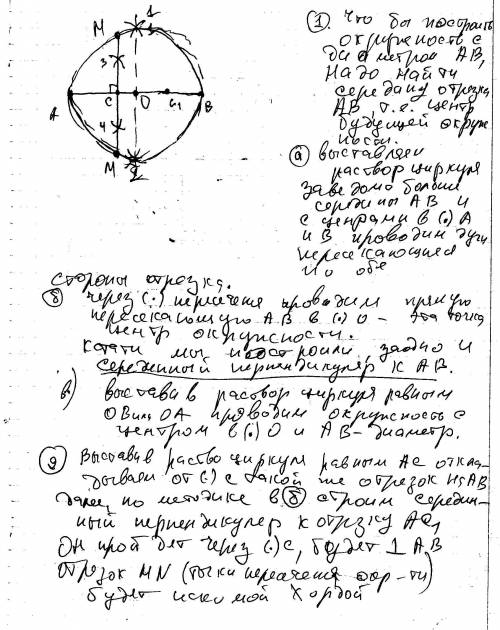 1
M
3
A
C
O
C₁
B
4
M
2
1. Что бы построить
окружность с
диаметром АВ,
надо найти
середину отрезка
АВ, т.е. центр
будущей окруж
ности.
а) выставляем
раствор циркуля
заведомо больше
середины АВ и
с центрами в (.) А
и В проводим дуги
пересекающиеся
по обе
стороны отрезка.
б) через (.) пересечения проводим прямую
пересекающую АВ в (.) О - эта точка
центр окружности.
Кстати мы построили, заодно и
серединный перпендикуляр к АВ.
в) выставив раствор циркуля равным
ОВ или ОА проводим окружность с
центром в (.) О и АВ-диаметр.
Выставив раствор циркуля равным АС откла
дываем от (.) С такой же отрезок на АВ
далее, по методике в б строим середин-
ный перпендикуляр к отрезку АС₁
Он пройдет через (.) С, будет ⊥ АВ
Отрезок MN (точки пересечения окр-ти)
будет искомой хордой